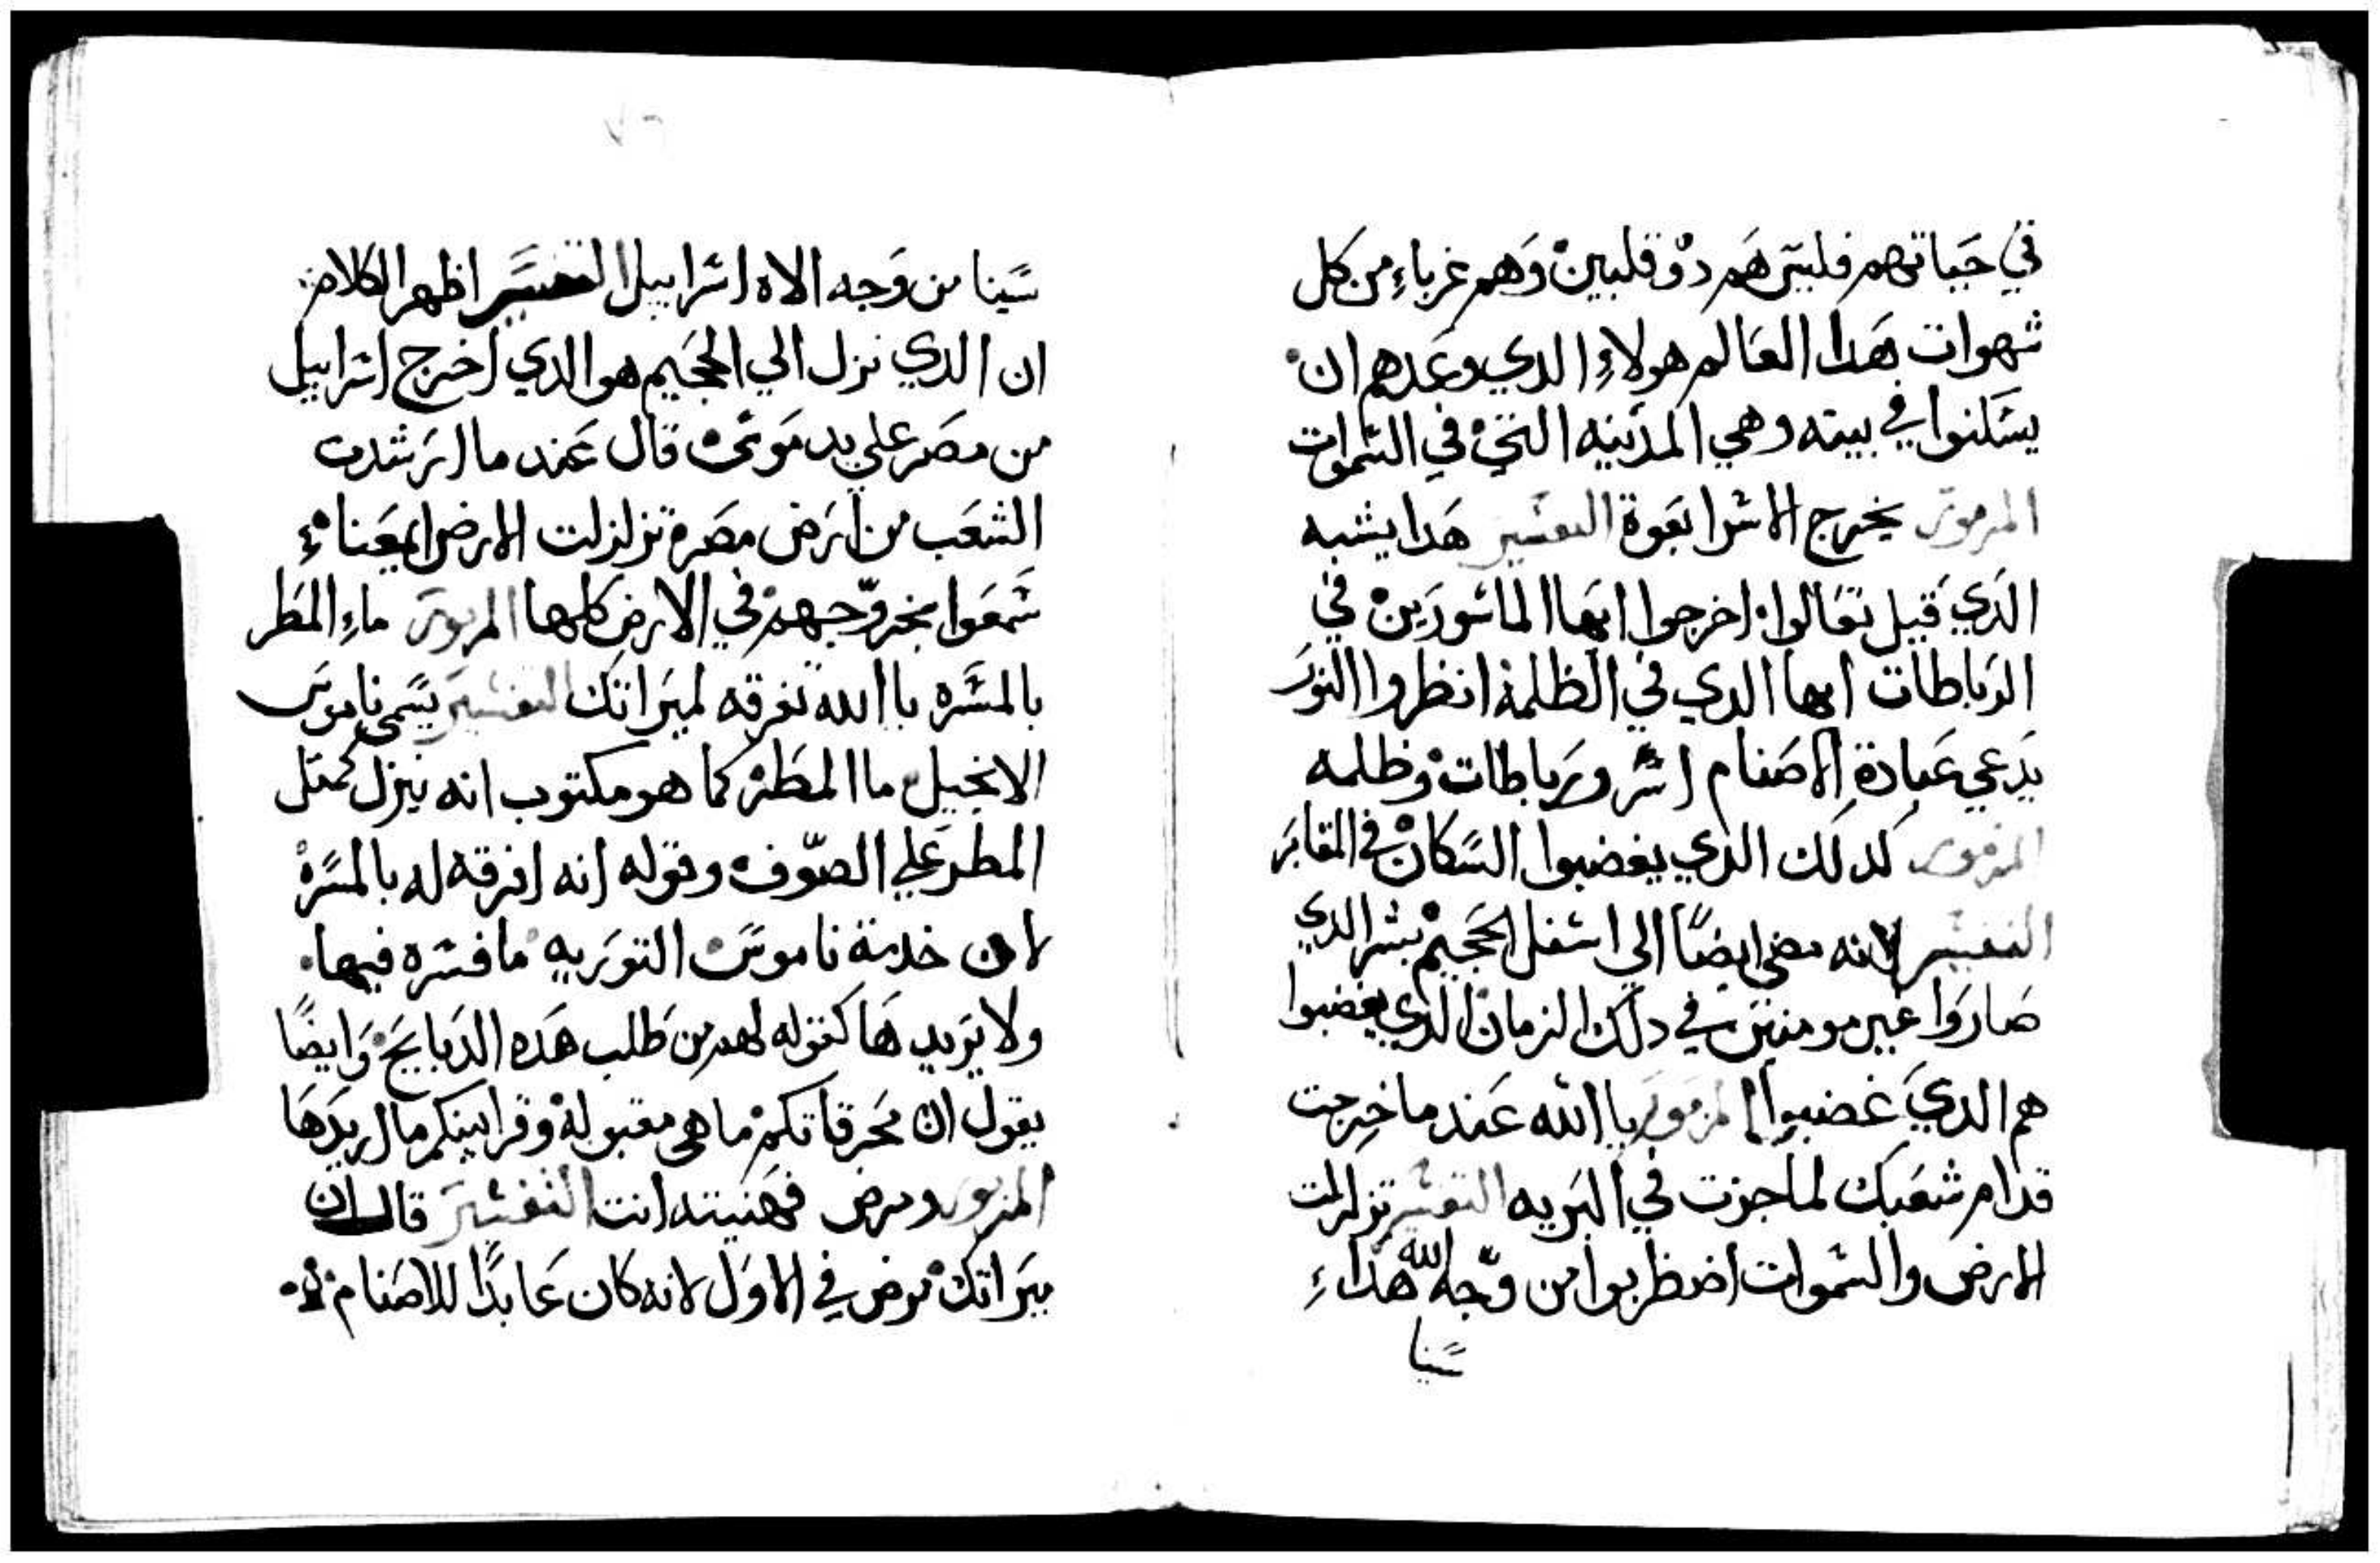 في حياتهم فليس هم دو قلبين وهم غرباء من كل
شهوات هدا العالم هولاء الدي وعدهم ان
يسكنوا في بيته وهي المدينه التي في السموات
المزمور يخرج الاسرا بقوة التفسير هدا يشبه
الدي قيل تعالوا اخرجوا ايها الماسورين في
الرباطات ايها الدي في الظلمة انظروا النور
يدعي عبادة الاصنام اسر ورباطات وظلمه
المزمور كدلك الدي يغضبوا السكان في المقابر
التفسير لانه مضى ايضًا الي اسفل الجحيم بشر الدي
صاروا غير مومنين في دلك الزمان الدي يغضبوا
هم الدي غضبوا المزمور يا الله عند ما خرجت
قدام شعبك لما جزت في البريه التفسير تزلزلت
الارض والسموات اضطربوا من وجه الله هداء
سينا
سينا من وجه الاه اسراييل التفسير اظهر الكلام
ان الدي نزل الي الجحيم هو الدي اخرج اسراييل
من مصر علي يد موسى قال عند ما ارشدت
الشعب من ارض مصر تزلزلت الارض اي معناه
سمعوا بخروجهم في الارض كلها المزمور ماء المطر
بالمسره يا الله تفرقه لميراتك التفسير يسمى ناموس
الانجيل ما المطر كما هو مكتوب انه ينزل كمتل
المطر علي الصوف وقوله انه افرقه له بالمسرة
لان خدمة ناموس التوريه ما فسره فيها
ولا يريدها كقوله لهم من طلب هده الدبايح وايضًا
يقول ان محرقاتكم ما هى مقبولة وقرابينكم ما اريدها
المزمور ومرض فهنيته انت التفسير قال ان
ميراتك مرض في الاول لانه كان عابدًا للاصنام